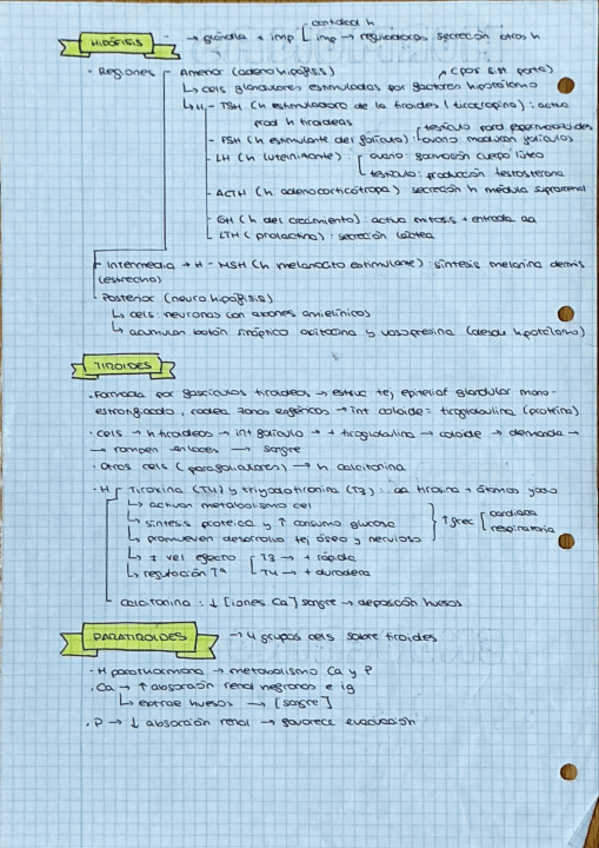 cantidad h
HIPÓFISIS → glándula + imp [ imp → reguladoras secreción otras h
· Regiones Anterior (adenohipófisis) (por sist porta)
↳ cels glandulares estimuladas por factores hipotálamo
↳ H - TSH (h estimuladora de la tiroides (tirotropina) : activa
prod h tiroideas
- FSH (h estimulante del folículo) : [ testículo: prod espermatozoides
ovario: maduran folículos
- LH (h luteinizante) : [ ovario: formación cuerpo lúteo
testículo: producción testosterona
- ACTH (h adenocorticótropa) secreción h médula suprarrenal
- GH (h del crecimiento) : activa mitosis + entrada aa
- LTH (prolactina) : secreción láctea
- Intermedia → H - MSH (h melanocito estimulante) : síntesis melanina dermis
(estrecho)
- Posterior (neurohipófisis)
↳ cels: neuronas con axones amielínicos
↳ acumulan botón sináptico oxitocina y vasopresina (desde hipotálamo)
TIROIDES
· Formada por folículos tiroideos → estruc tej epitelial glandular mono-
estratificado, rodea zonas esféricas → int coloide = tiroglobulina (proteína)
· cels → h tiroideas → int folículo → + tiroglobulina → coloide → demanda →
→ rompen enlaces → sangre
· Otras cels (parafoliculares) → h calcitonina
· H [ Tiroxina (T4) y triyodotironina (T3) : aa tirosina + átomos yodo
↳ activan metabolismo cel
↳ síntesis proteica y ↑ consumo glucosa } ↑ frec [ cardiaca
respiratoria
↳ promueven desarrollo tej óseo y nervioso
↳ + vel efecto [ T3 → + rápida
↳ regulación Tª T4 → + duradera
Calcitonina : ↓ [iones Ca] sangre → deposición huesos
PARATIROIDES → 4 grupos cels sobre tiroides
· H parathormona → metabolismo Ca y P
· Ca → ↑ absorción renal nefronas e ig
↳ extrae huesos → [sangre]
· P → ↓ absorción renal → favorece evacuación